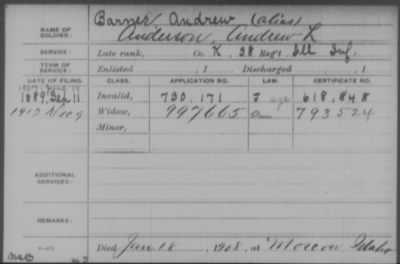 Barger, Andrew (alias)
NAME OF SOLDIER: Anderson, Andrew L
SERVICE: Late rank, Co. K, 38 Reg't Ill Inf.
TERM OF SERVICE: Enlisted , 1 Discharged , 1
DATE OF FILING. CLASS. APPLICATION NO. LAW. CERTIFICATE NO.
1889 Sep 11 Invalid, 733,171 618,848
1912 Dec 9 Widow, 997665 793524
Minor,
ADDITIONAL SERVICES:
REMARKS:
Died Jan 18, 1908, at Moscow Idaho